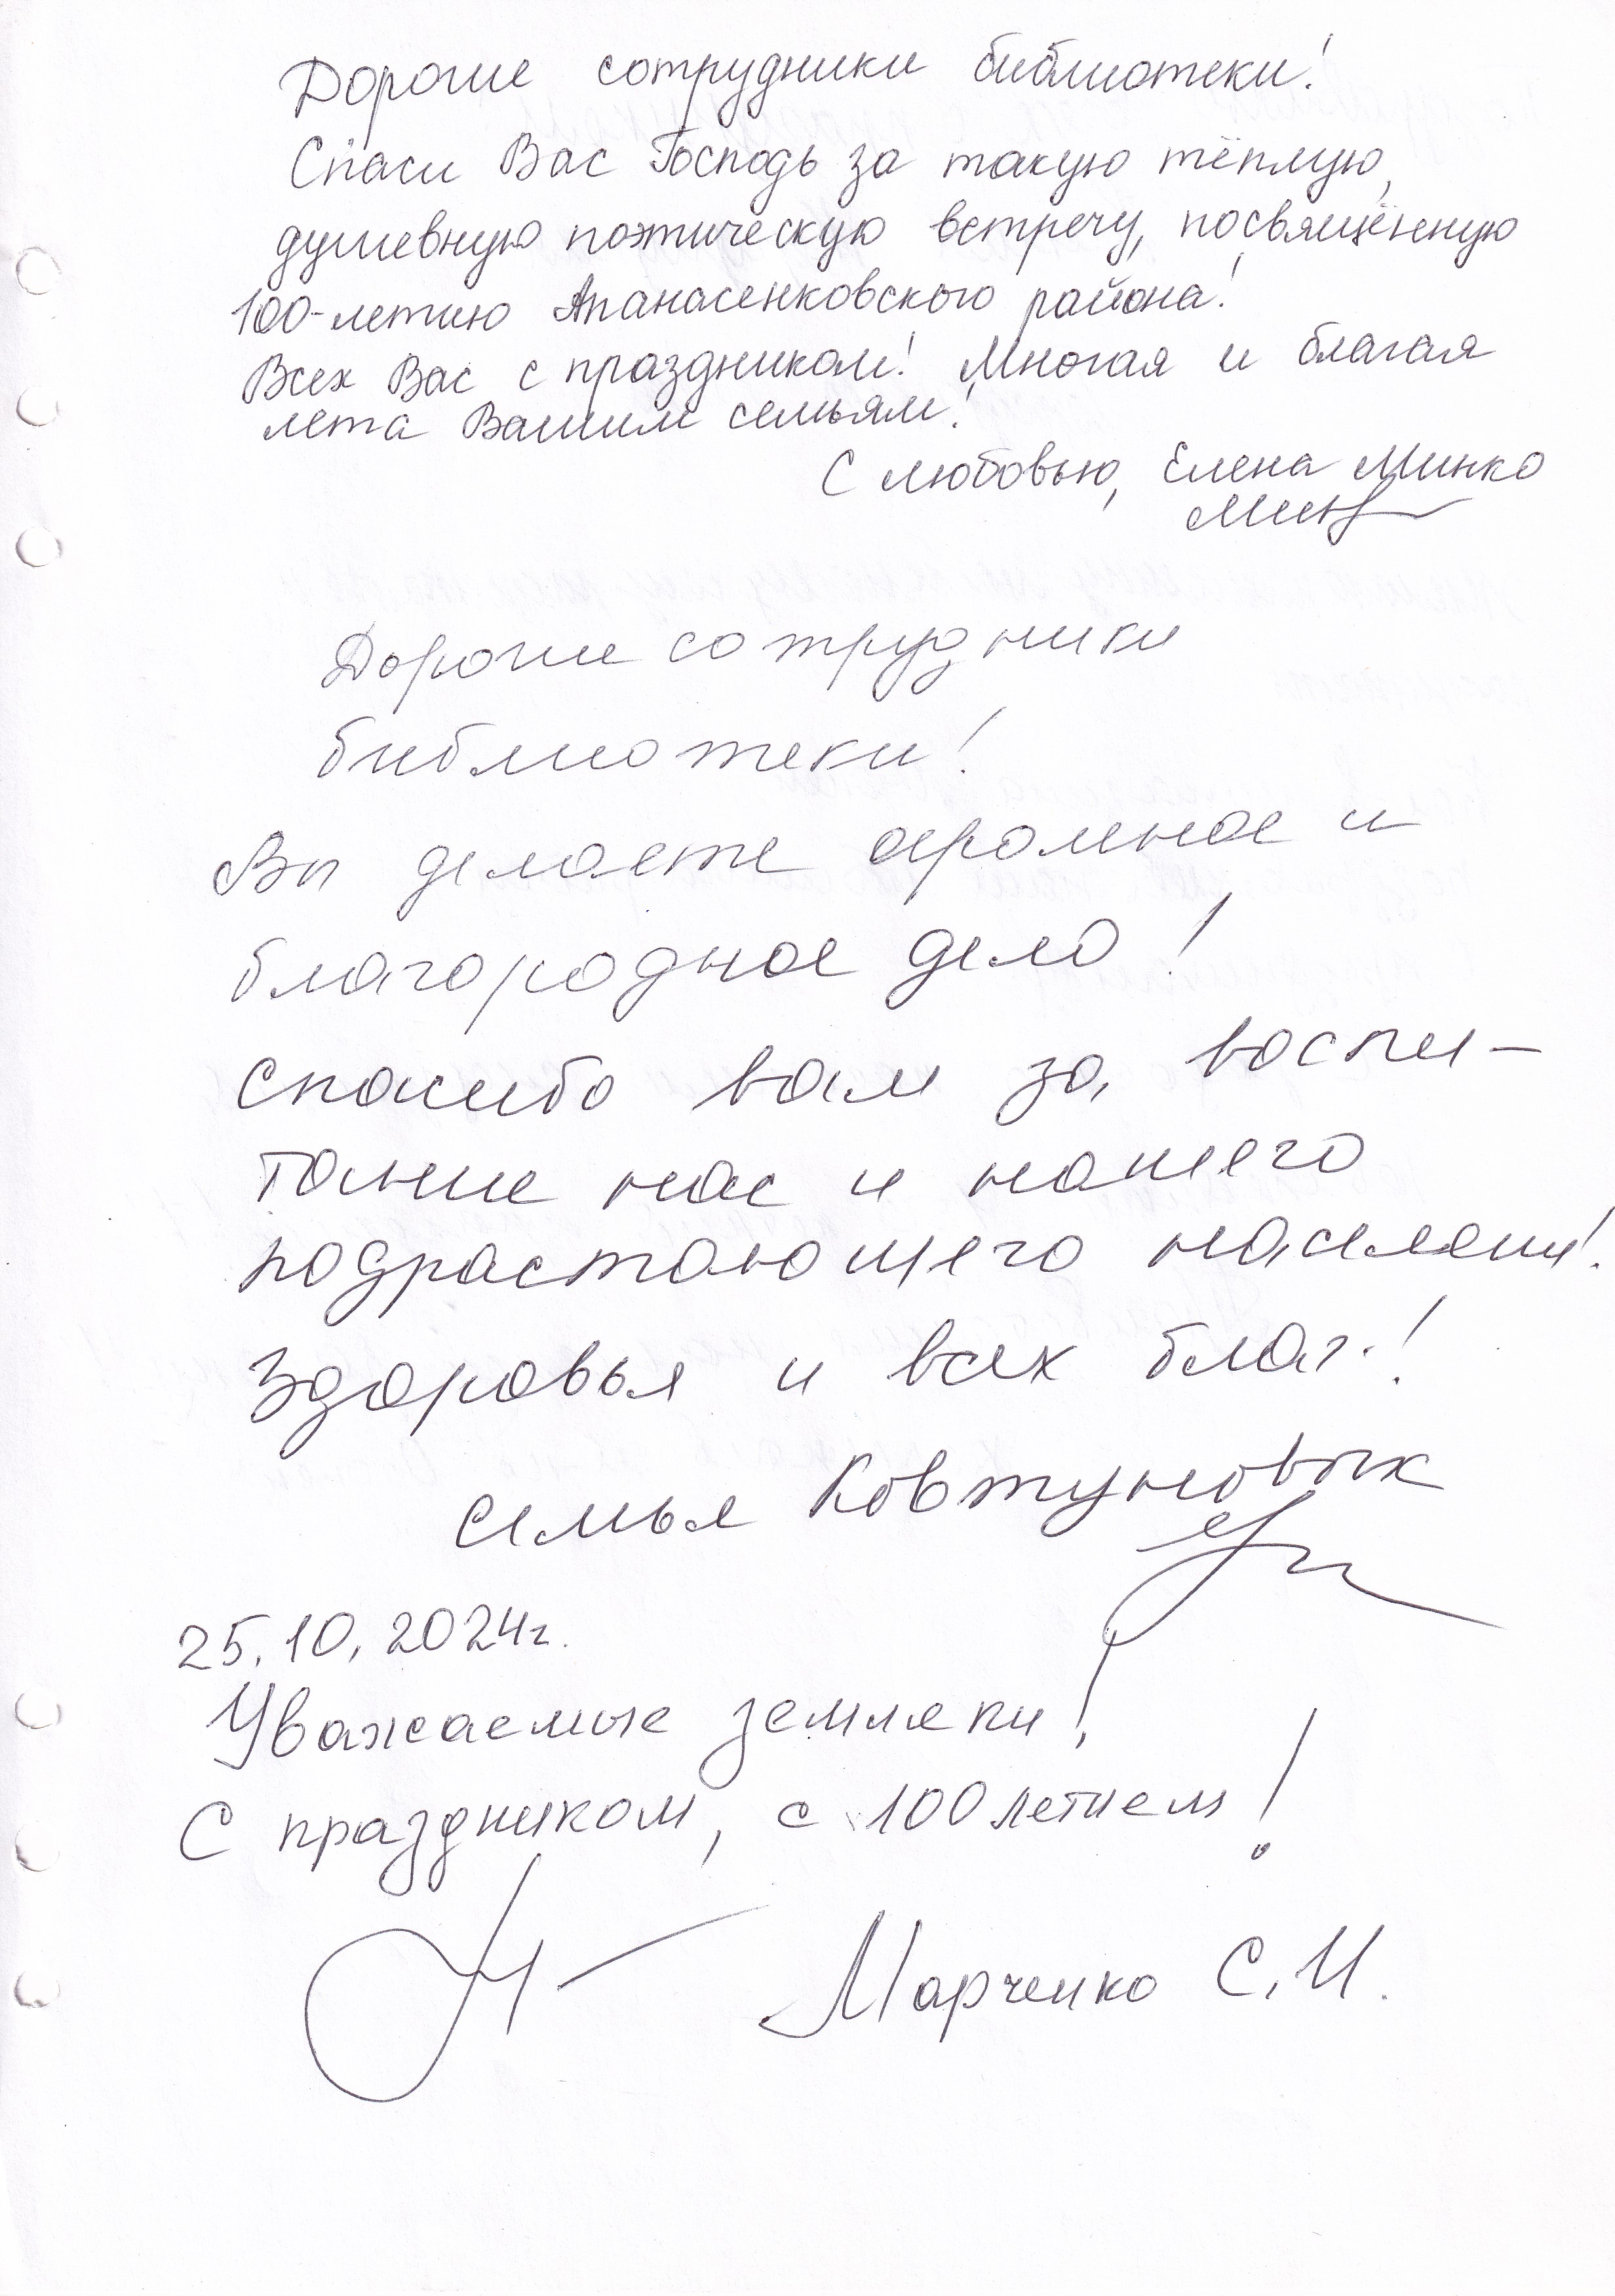 Дорогие сотрудники библиотеки!
Спаси Вас Господь за такую тёплую,
душевную поэтическую встречу, посвящённую
100-летию Апанасенковского района!
Всех Вас с праздником! Многая и благая
лета Вашим семьям!
С любовью, Елена Минко
Дорогие сотрудники
библиотеки!
Вы делаете огромное и
благородное дело!
спасибо вам за воспи-
тание нас и нашего
подрастающего населения!
Здоровья и всех благ!
семья Ковтуновых
25.10.2024г.
Уважаемые земляки!
С праздником, с 100 летием!
Марченко С.И.